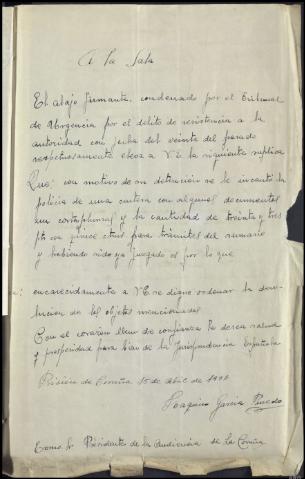 A la Sala
El abajo firmante, condenado por el Tribunal
de Urgencia por el delito de resistencia a la
autoridad con fecha del veinte del pasado
respetuosamente eleva a VE la siguiente suplica
Que con motivo de su detención se le incautó la
policia de una cartera con algunos documentos
un cortaplumas y la cantidad de treinta y tres
pts con quince ctms para trámites del sumario
y habiendo sido ya juzgado es por lo que
encarecidamente a VE se digne ordenar la devo-
lucion de los objetos mencionados
Con el corazón lleno de confianza le desea salud
y prosperidad para bien de la Jurisprudencia Española
Prisión de Coruña 15 de Abril de
Joaquina Garcia
Excmo Sr Presidente de la Audiencia de La Coruña